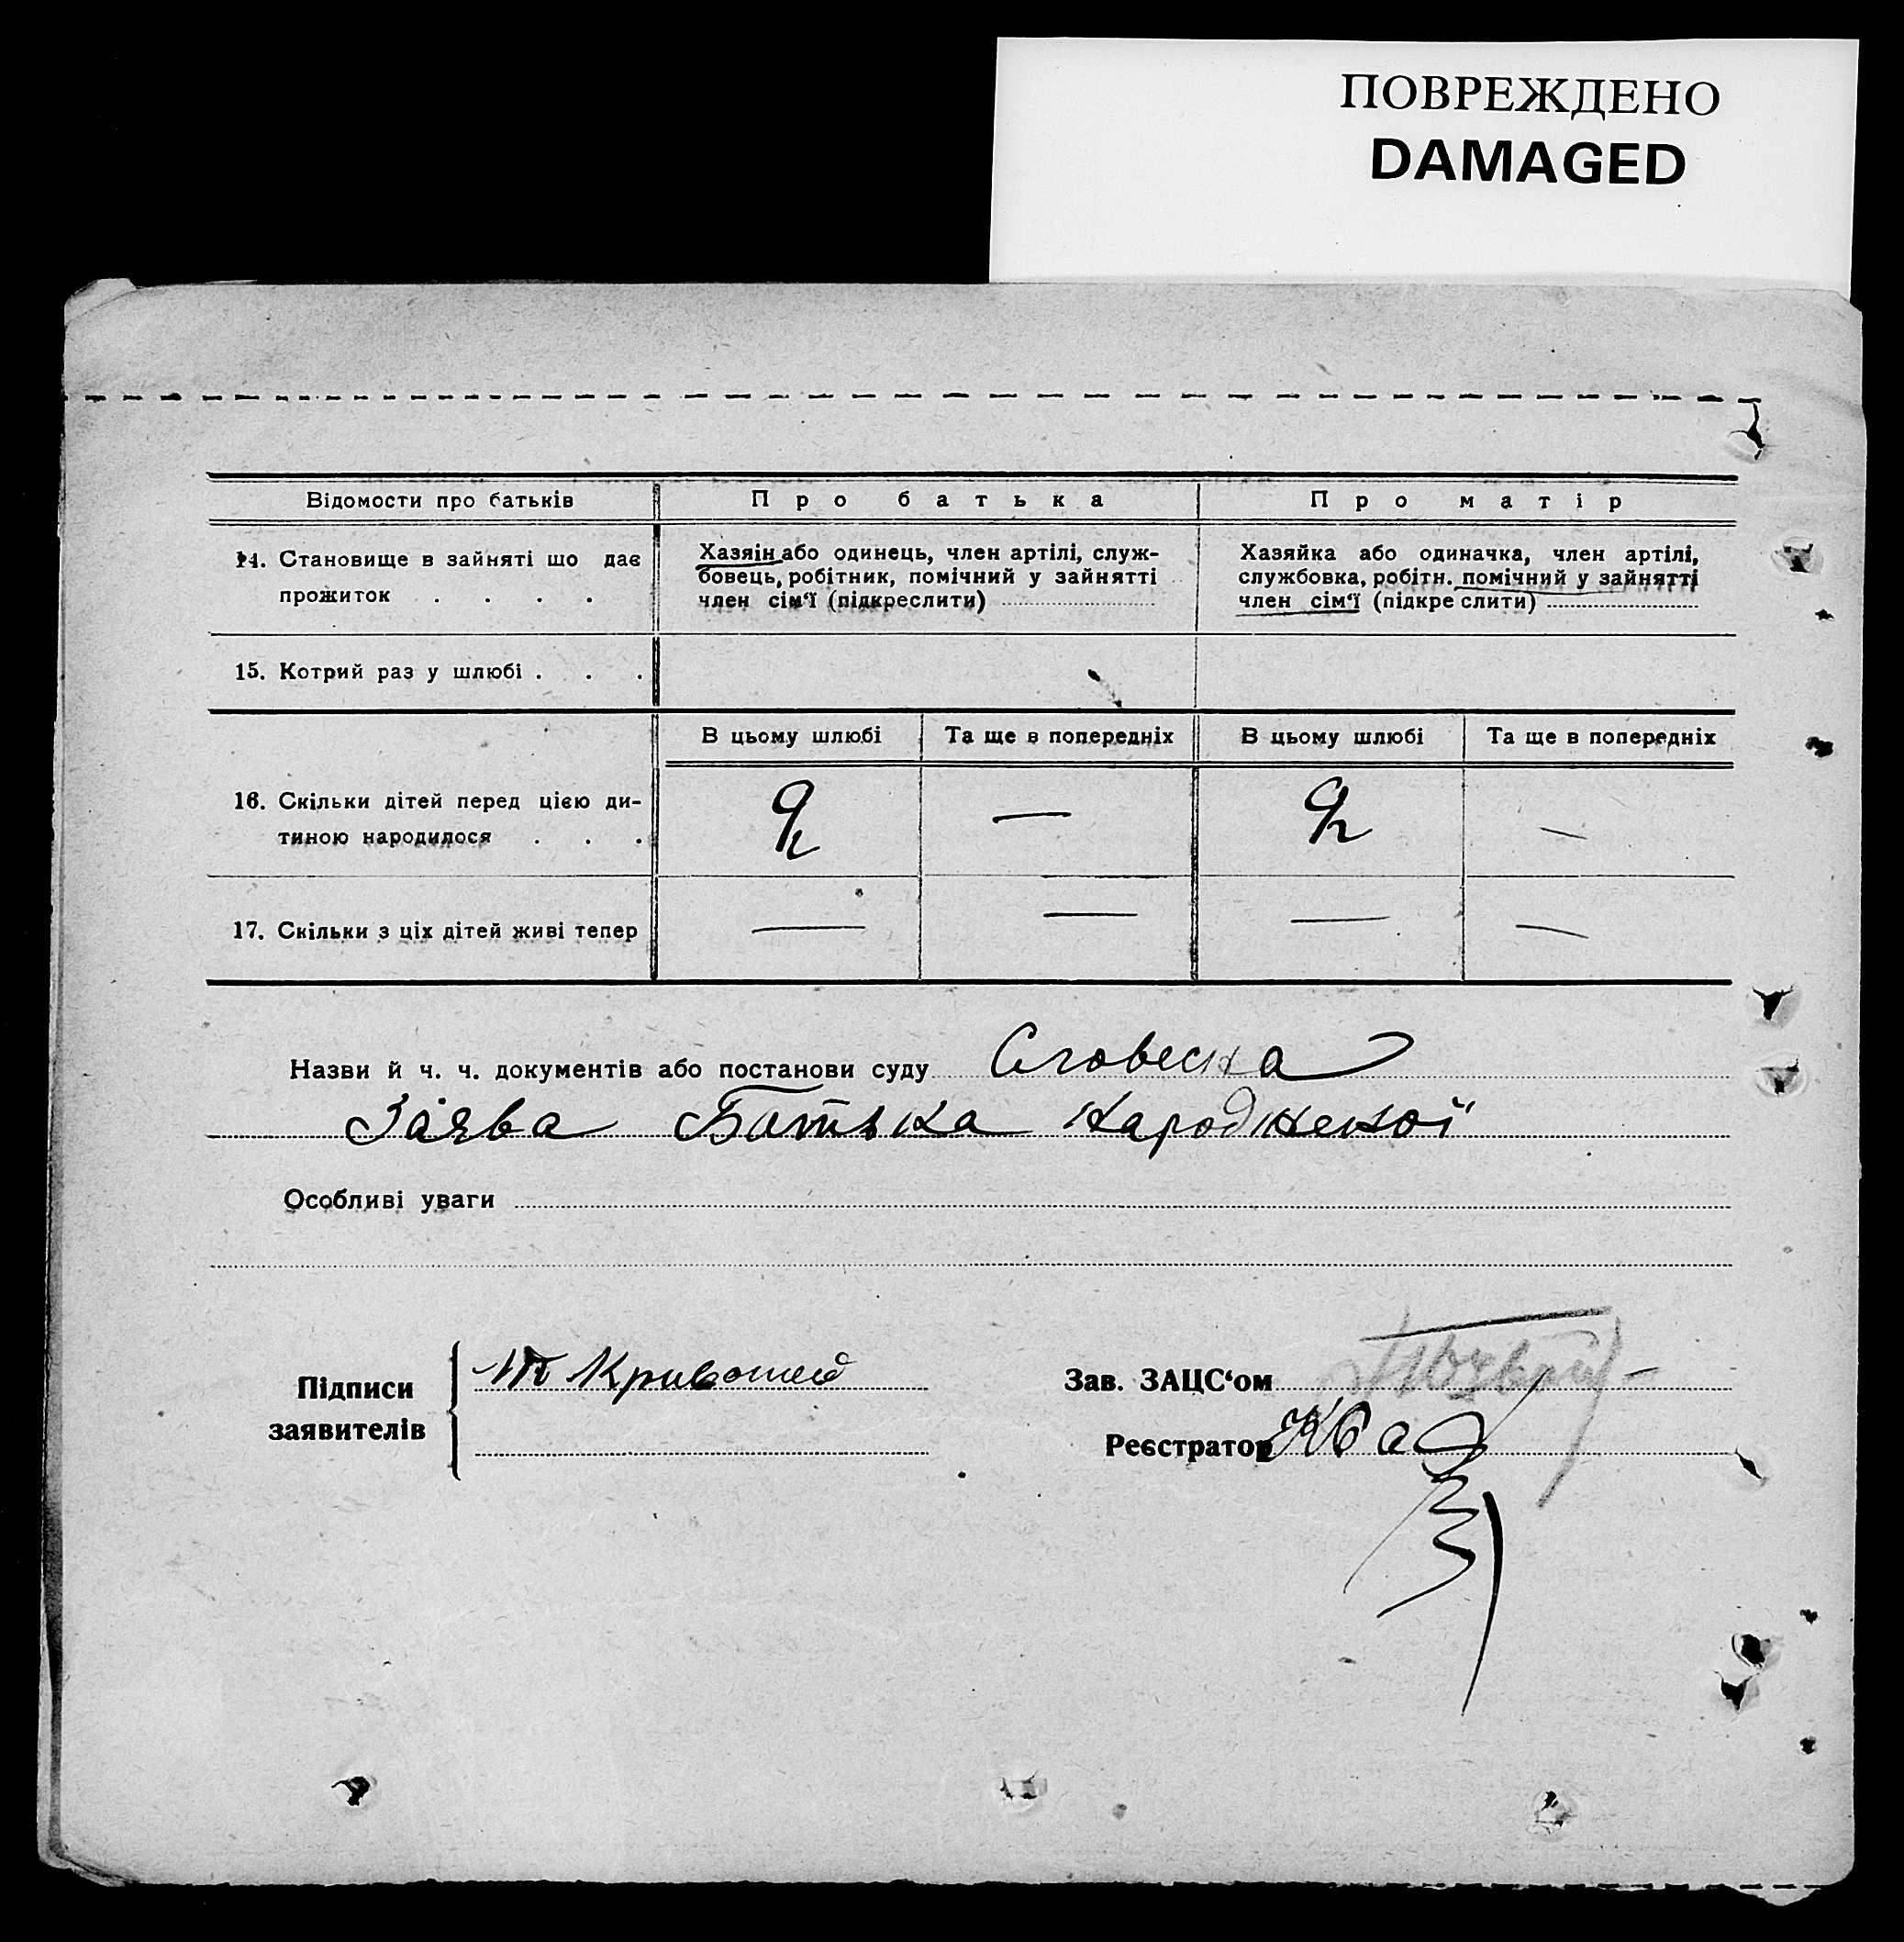 ПОВРЕЖДЕНО
DAMAGED
Відомости про батьків
Про батька
Про матір
14. Становище в зайняті що дає
прожиток . . . .
Хазяін або одинець, член артілі, служ-
бовець, робітник, помічний у зайнятті
член сім‘ї (підкреслити)
Хазяйка або одиначка, член артілі,
службовка, робітн. помічний у зайнятті
член сім‘ї (підкре слити)
15. Котрий раз у шлюбі . . .
В цьому шлюбі
Та ще в попередніх
В цьому шлюбі
Та ще в попередніх
16. Скільки дітей перед цією ди-
тиною народилося . . .
— —
17. Скільки з ціх дітей живі тепер
— — — —
Назви й ч. ч. документів або постанови суду Словесна
Заява Батька народженої
Особливі уваги
Підписи
заявителів
Кривошей
Зав. ЗАЦС‘ом
Реєстратор Квас